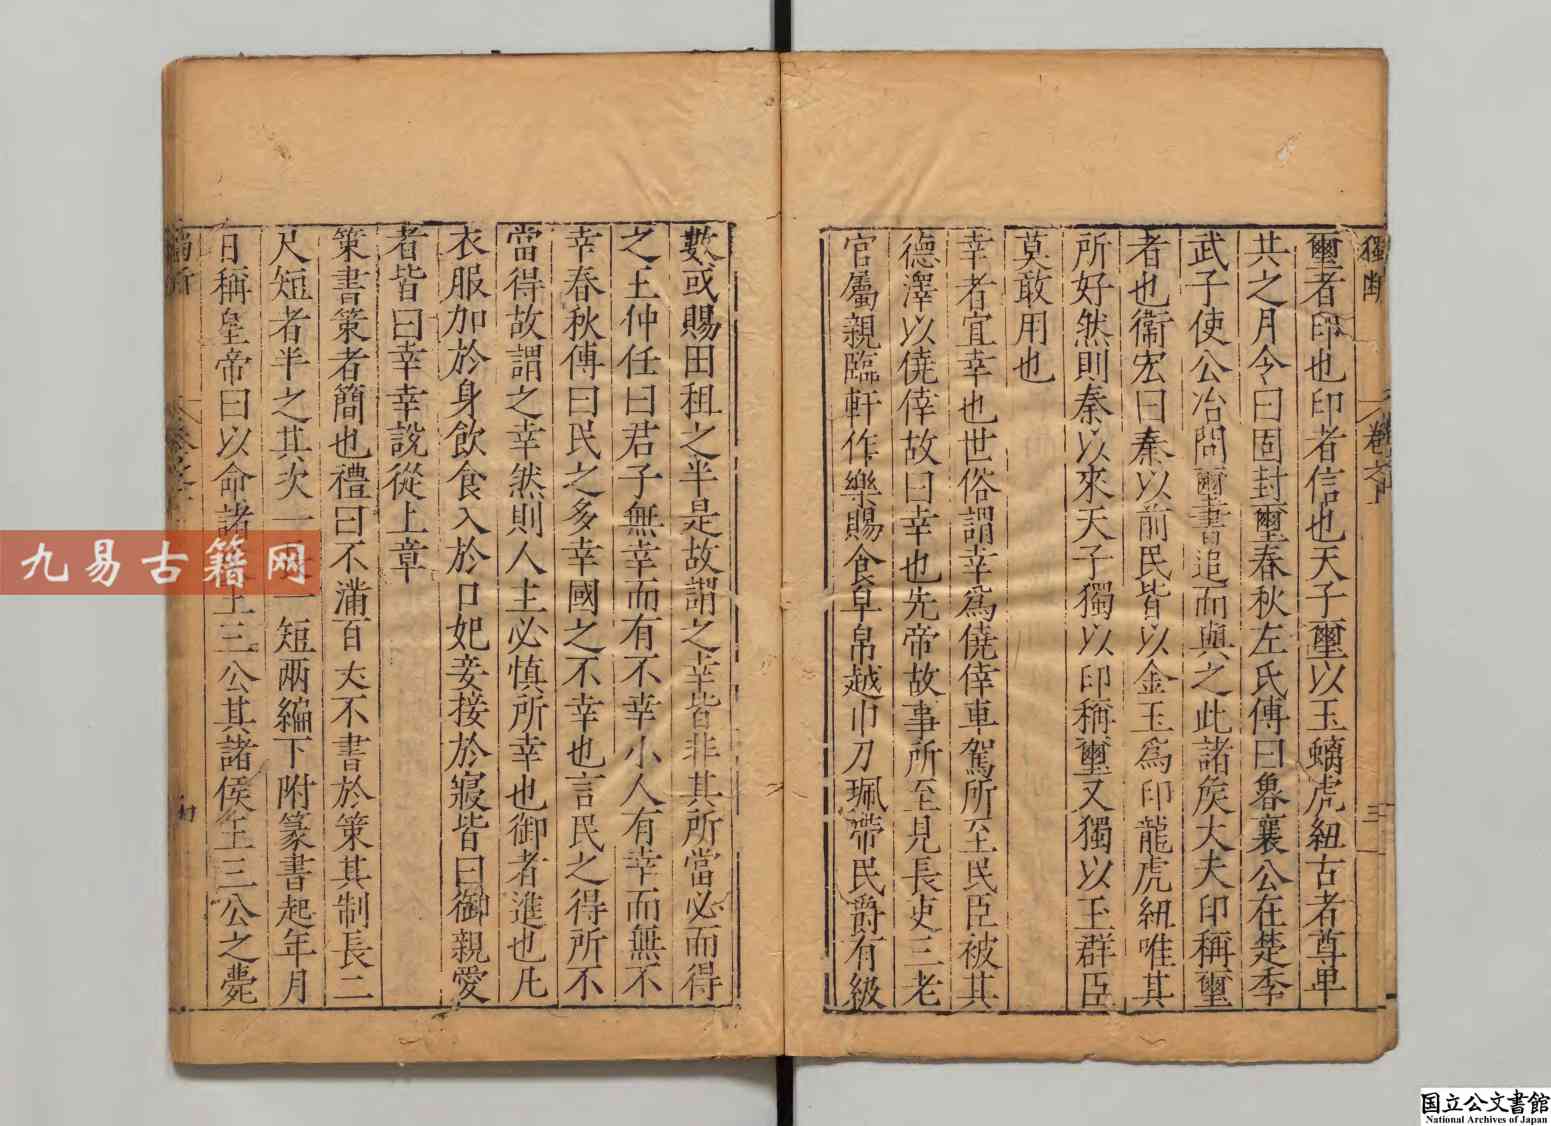 獨斷 卷之上 三
璽者印也印者信也天子璽以玉螭虎紐古者尊卑
共之月令曰固封璽春秋左氏傳曰魯襄公在楚季
武子使公冶問璽書追而與之此諸矦大夫印稱璽
者也衞宏曰秦以前民皆以金玉爲印龍虎紐唯其
所好然則秦以來天子獨以印稱璽又獨以玉群臣
莫敢用也
幸者宜幸也世俗謂幸爲僥倖車駕所至民臣被其
德澤以僥倖故曰幸也先帝故事所至見長吏三老
官屬親臨軒作樂賜食皁帛越巾刀珮帶民爵有級
數或賜田租之半是故謂之幸皆非其所當必而得
之王仲任曰君子無幸而有不幸小人有幸而無不
幸春秋傳曰民之多幸國之不幸也言民之得所不
當得故謂之幸然則人主必慎所幸也御者進也凡
衣服加於身飲食入於口妃妾接於寢皆曰御親愛
者皆曰幸幸說從上章
策書策者簡也禮曰不滿百文不書於策其制長二
尺短者半之其次一 一短兩編下附篆書起年月
日稱皇帝曰以命諸 王三公其諸侯王三公之薨
九易古籍网
国立公文書館
National Archives of Japan